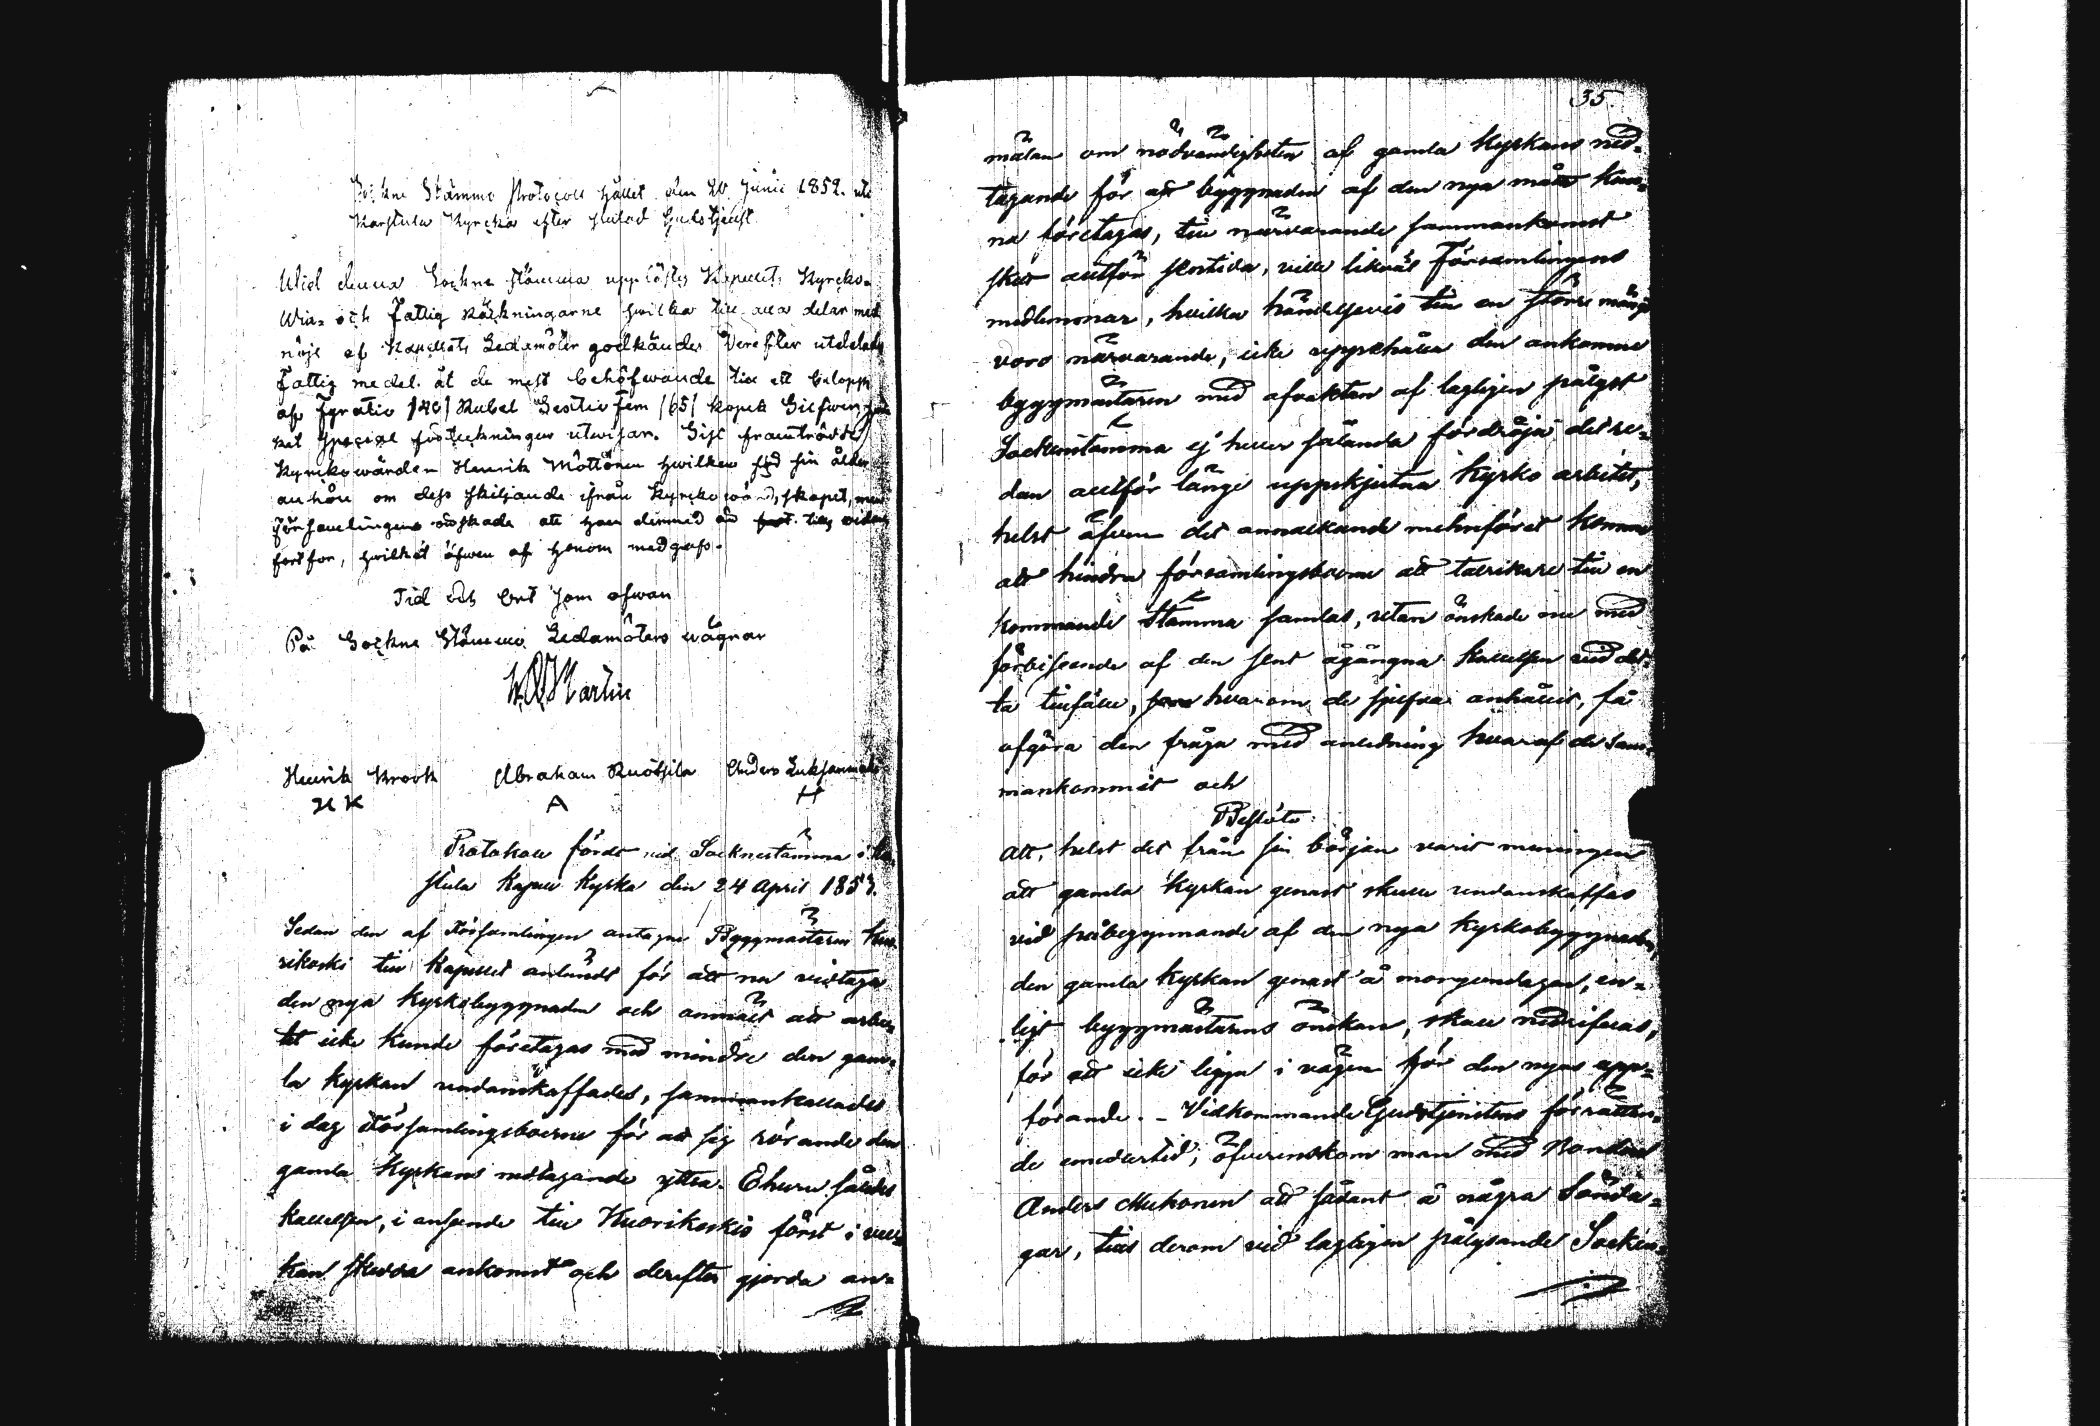 Sockne Stämmo Protocoll hållet den 20 Junii 1852. uti
Karstula Kyrcka efter slutad Gudstjenst
Wid denna Sockne stämma upplästes Kapellets Kyrcko-
Win- och Fattig Räckningarne hwilka till alla delar med
nöje af Kapellets Ledamöter godkändes Derefter utdelades
Fattig medel åt de mest behöfwande till ett belopp
af Fyratio /40/ Rubel Sextio Fem /65/ kopek Silfwer,
ket special förteckningen utwisar. Sist framträdde
Kyrckowärden Henrik Möttönen hwilken för sin ålder
anhöll om dess skiljande ifrån Kyrckowärdskapet, men
Församlingen önskade att han dermed än widare
fortfor, hwilket äfwen af honom medgafs.
Tid och Ort som ofwan
På Sockne Stämmo Ledamöters wägnar
Martin
Henrik Krook Abraham Ruotsila Anders
H K A H
Protokoll fördt vid Socknestämma i Kar-
stula Kapell Kyrka den 24 April 1853.
Sedan den af Församlingen antagne Byggmästaren Kuo-
rikoski till Kapellet anländt för att nu vidtaga
den nya Kyrkobyggnaden och anmält att arbe-
tet icke kunde företagas med mindre den gam-
la kyrkan undanskaffades, sammankallades
i dag Församlingsboerne för att sig rörande den
gamla Kyrkans nedtagande yttra. Ehuru således
kallelsen, i anseende till Kuorikoskis först i vec-
kan skedda ankomst och derefter gjorda an-
35.
mälan om nödvändigheten af gamla Kyrkans ned-
tagande för att byggnaden af den nya måtte kun-
na företagas, till närvarande sammankomst
skett alltför skortida, ville likväl Församlingens
medlemmar, hvilka händelsevis till en större mängd
voro närvarande, icke uppehålla den ankomne
byggmästaren med afvaktan af lagligen pålyst
Sockenstämma ej heller sålunda fördröja det re-
dan alltför länge uppskjutna Kyrko arbetet,
helst äfven det annalkande mehnföret komme
att hindra församlingsboerne att talrikare till en
kommande Stämma samlas, utan önskade nu med
förbiseende af den sent ågångna kallelsen vid det-
ta tillfälle, hvarom de sjelfva anhållit, få
afgöra den fråga med anledning hvaraf de sam-
mankommit och
Beslöts:
Att, helst det från sin början varit meningen
att gamla Kyrkan genast skulle undanskaffas
vid påbegynnande af den nya Kyrkobyggnaden,
den gamla Kyrkan genast å morgondagen, en-
ligt byggmästarens önskan, skall nedrifvas,
för att icke ligga i vägen för den nyas upp-
förande. - Vidkommande Gudstjenstens förrättan-
de emedlertid, öfverenskom man med Bonden
Anders Muhonen att sådant å några Sönda-
gar, tills derom vid lagligen pålysande Socken-